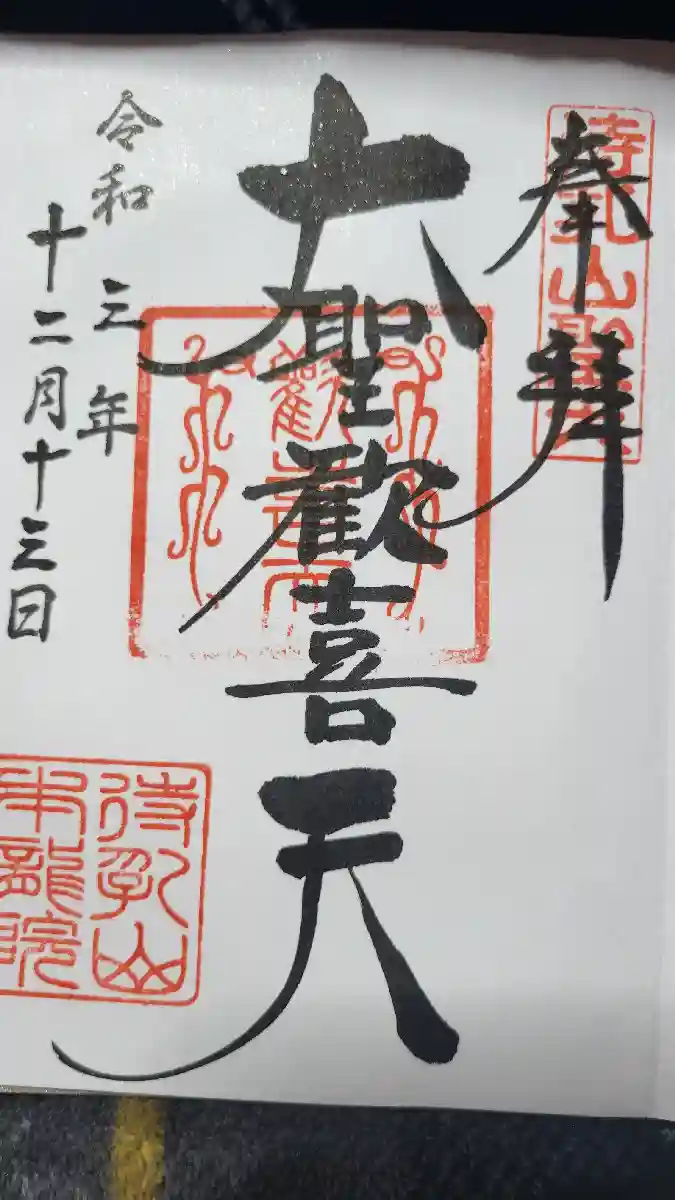 奉拝
待乳山聖天
大聖歓喜天
歓喜天
令和三年
十二月十三日
待乳山
本龍院